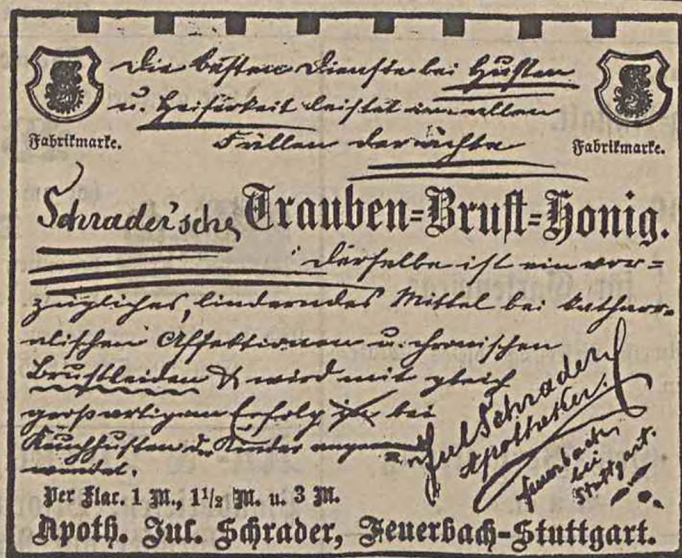 Die besten Dienste bei Husten
u. Heiserkeit leistet in allen
Fabrikmarke. Fällen der ächte Fabrikmarke.
Schrader'sche Trauben-Brust-Honig.
Derselbe ist ein vor-
zügliches, linderndes Mittel bei kathar-
alischen Affektionen u. chronischen
Brustleiden & wird mit gleich
großartigem Erfolg bei
Keuchhusten d. Kinder angewendet.
Jul Schrader
Apotheker.
Feuerbach
bei
Stuttgart.
Per Flac. 1 M., 1½ M. u. 3 M.
Apoth. Jul. Schrader, Feuerbach-Stuttgart.